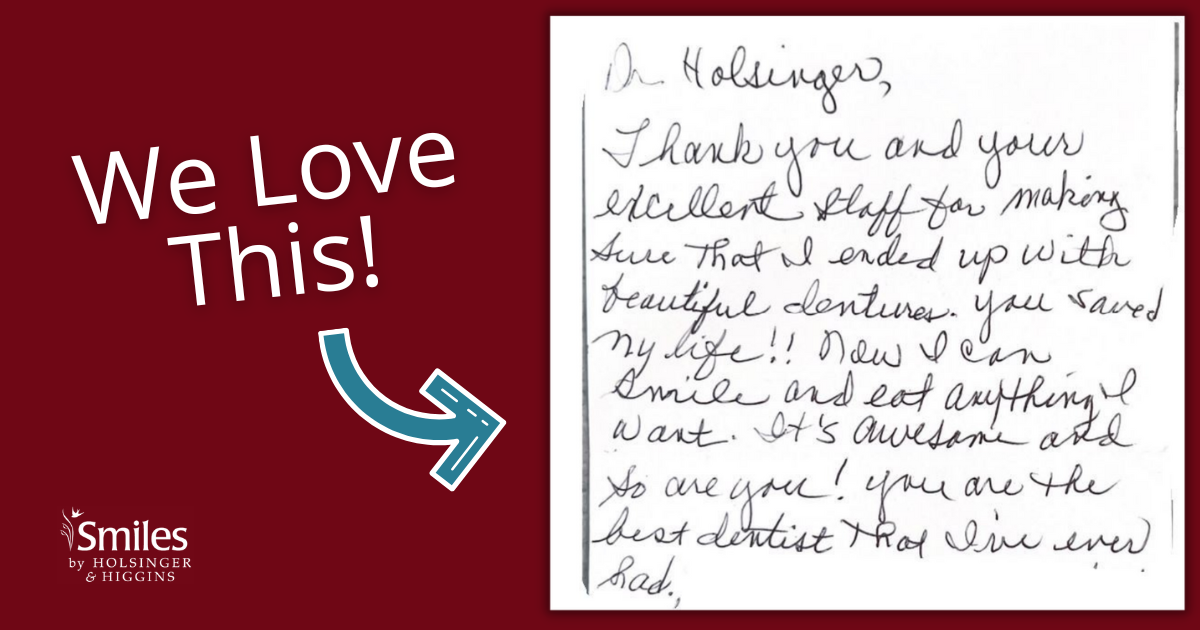 We Love
This!
Smiles
by HOLSINGER
& HIGGINS
Dr Holsinger,
Thank you and your
excellent staff for making
sure that I ended up with
beautiful dentures. you saved
my life!! Now I can
smile and eat anything I
want. It's awesome and
so are you! you are the
best dentist that I've ever
had.,